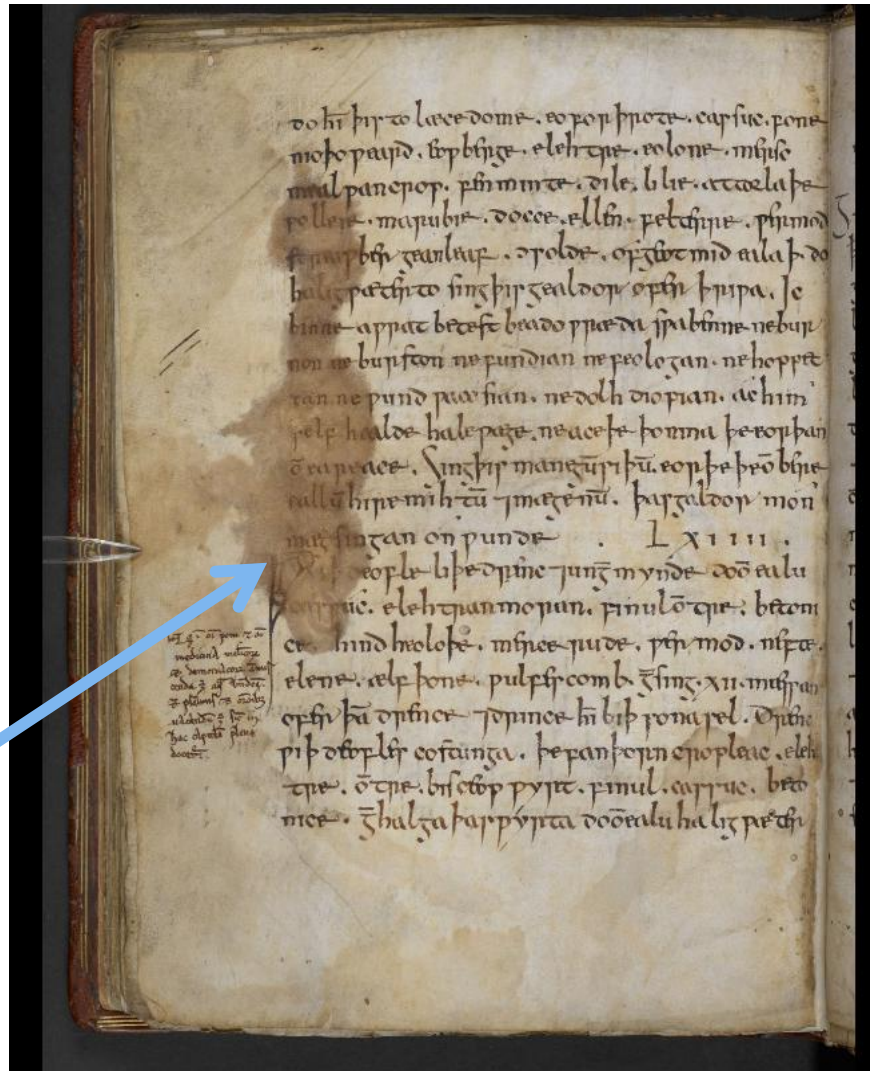 do hī þis to læcedome . eoforþrote . cassuc . fone
nioþo peard . eopberge . elehtre . eolone . merisc
mealpan crop . fen minte . dile . lilie . attorlaþe
polleie . marubie . docce . ellen . felterre . permod
streapbergean leaf . ofgeot mid ealaþ . do
halig pæter to sing þis gealdor ofer þripa . Ic
binne apprat betest beado præda spa benne ne bur
non ne burston ne fundian ne feologan . ne hoppet
tan ne pund paco sian . ne dolh diopian . ac him
self healde halepæge . ne ace þe þon ma þe eorþan
ō eare ace . Sing þis manegū siþū . eorþe þe ō bere
eallū hire mihtū ⁊ mægenū . þas galdor mon
mæg singan on punde . LXIIII .
Ƿiþ deofle liþe drenc ⁊ ung mynde do ō ealu
cassuc . elehtran moran . finul ō tre . beton
ce . hind heoloþe . merce rude . per mod . nefte .
elene . ælf þone . pulfes comb . ḡ sing . XII . mæssan
ofer þā drence ⁊ drince hī biþ sona sel . Drenc
piþ deofles costunga . þefan þorn cropleac . eleh
tre . ō tre . bisceop pyrt . finul . cassuc . beto
nice . ḡ halga þas pyrta do ō ealu halig pæter